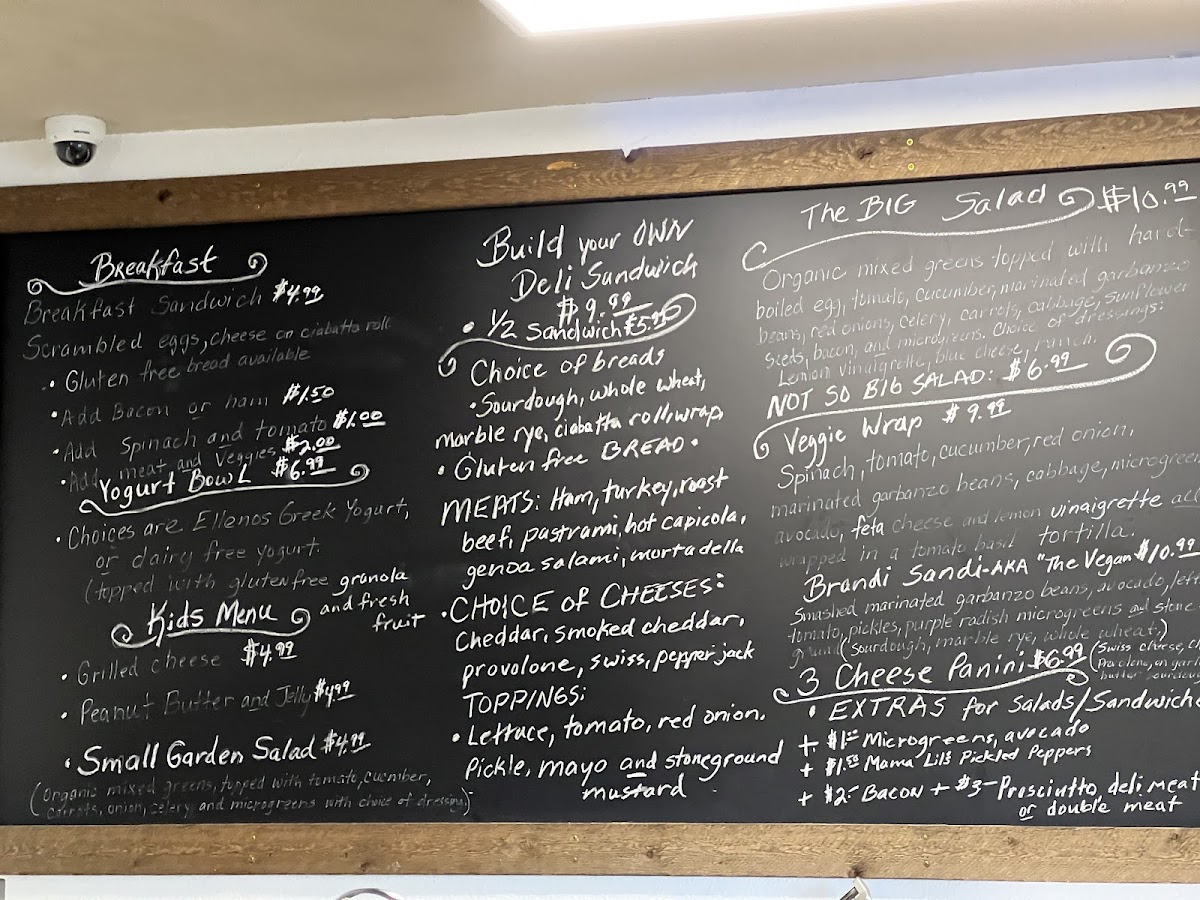 Breakfast
Breakfast Sandwich $4.99
Scrambled eggs, cheese on ciabatta roll
• Gluten free bread available
• Add Bacon or ham $1.50
• Add Spinach and tomato $1.00
• Add meat and Veggies $2.00
Yogurt Bowl $6.99
• Choices are Ellenos Greek Yogurt,
or dairy free yogurt.
(topped with gluten free granola
and fresh
fruit
Kids Menu
• Grilled cheese $4.99
• Peanut Butter and Jelly $4.99
• Small Garden Salad $4.99
(organic mixed greens, topped with tomato, cucumber,
carrots, onion, celery and microgreens with choice of dressing.)
Build your OWN
Deli Sandwich
$9.99
• 1/2 Sandwich $5.99
Choice of breads
• Sourdough, whole wheat,
marble rye, ciabatta roll, wrap,
• Gluten free BREAD •
MEATS: Ham, turkey, roast
beef, pastrami, hot capicola,
genoa salami, mortadella
• CHOICE of CHEESES:
Cheddar, smoked cheddar,
provolone, swiss, pepper jack
TOPPINGS:
• Lettuce, tomato, red onion.
Pickle, mayo and stoneground
mustard
The BIG Salad $10.99
Organic mixed greens topped with hard-
boiled egg, tomato, cucumber, marinated garbanzo
beans, red onions, celery, carrots, cabbage, sunflower
seeds, bacon, and microgreens. Choice of dressings:
Lemon vinaigrette, blue cheese, ranch.
NOT SO BIG SALAD: $6.99
Veggie Wrap $9.99
Spinach, tomato, cucumber, red onion,
marinated garbanzo beans, cabbage, microgreen
avocado, feta cheese and lemon vinaigrette all
wrapped in a tomato basil tortilla.
Brandi Sandi-AKA "The Vegan $10.99
Smashed marinated garbanzo beans, avocado, lett
tomato, pickles, purple radish microgreens and stone
ground (sourdough, marble rye, whole wheat.)
3 Cheese Panini $6.99 (Swiss cheese,
on
butter
• EXTRAS for Salads/Sandwiche
+ $1.00 Microgreens, avocado
+ $1.50 Mama Lil's Pickled Peppers
+ $2.- Bacon + $3- Prosciutto, deli meat
or double meat